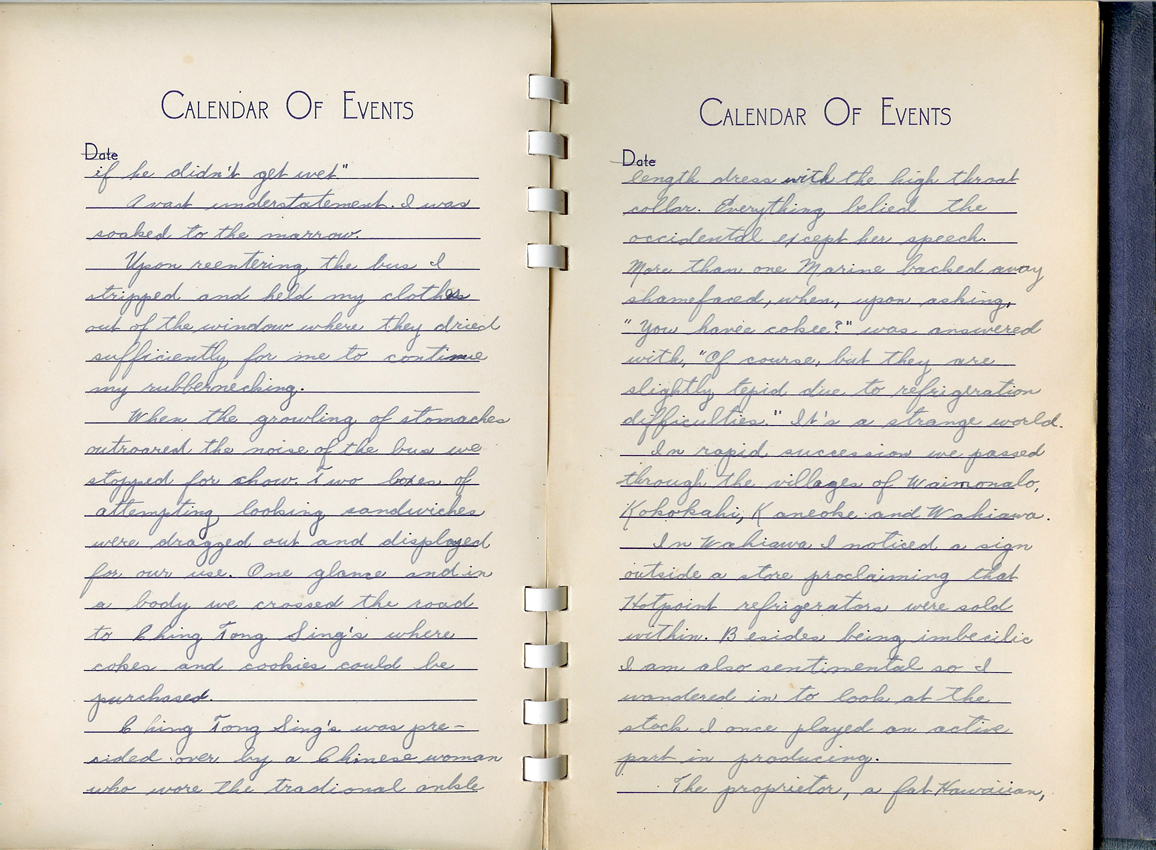 CALENDAR OF EVENTS
Date
if he didn't get wet"
A vast understatement. I was
soaked to the marrow.
Upon reentering the bus I
stripped and held my clothes
out of the window where they dried
sufficiently for me to continue
my rubbernecking.
When the growling of stomaches
outroared the noise of the bus we
stopped for chow. Two boxes of
attempting looking sandwiches
were dragged out and displayed
for our use. One glance and in
a body we crossed the road
to Ching Tong Sing's where
cokes and cookies could be
purchased.
Ching Tong Sing's was pre-
sided over by a Chinese woman
who wore the tradional ankle
CALENDAR OF EVENTS
Date
length dress with the high throat
collar. Everything belied the
occidental except her speech.
More than one Marine backed away
shamefaced, when, upon asking,
"You havee cokee?" was answered
with, "Of course, but they are
slightly tepid due to refrigeration
difficulties." It's a strange world.
In rapid succession we passed
through the villages of Waimonalo,
Kokokahi, Kaneoke and Wahiawa.
In Wahiawa I noticed a sign
outside a store proclaiming that
Hotpoint refrigerators were sold
within. Besides being imbecilic
I am also sentimental so I
wandered in to look at the
stock I once played an active
part in producing.
The proprietor, a fat Hawaiian,